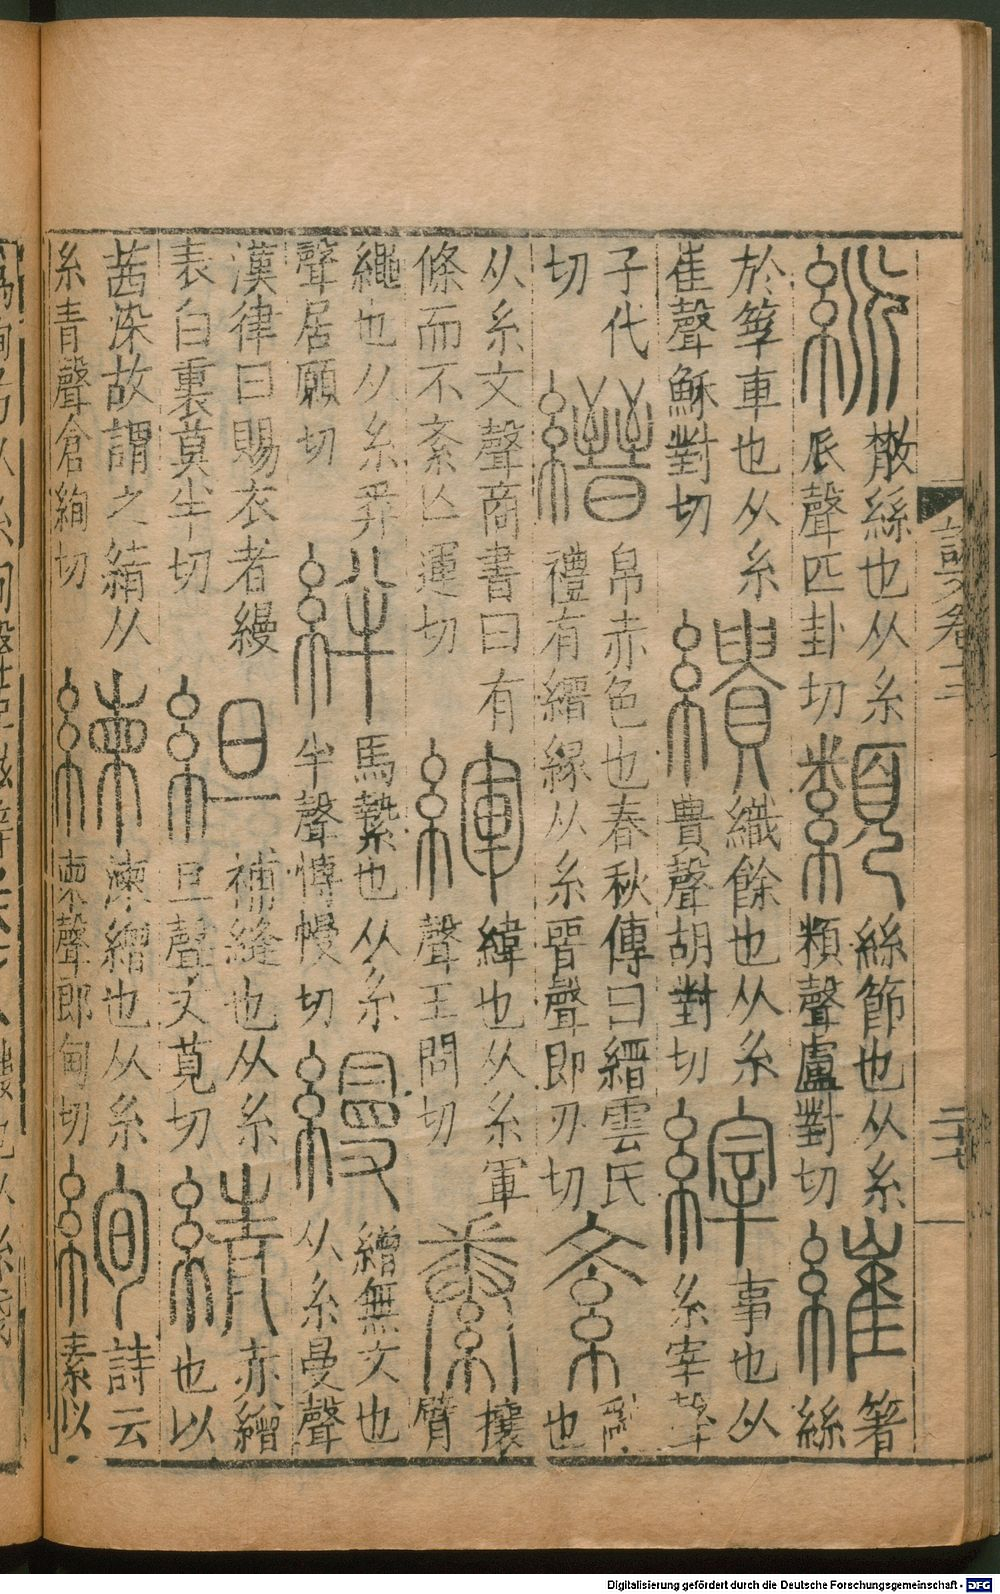 散絲也从糸𠂢聲匹卦切纇絲節也从糸頪聲盧對切繀箸絲
於筟車也从糸崔聲穌對切繢織餘也从糸貴聲胡對切縡事也从糸宰聲
子代切縉帛赤色也春秋傳曰縉雲氏禮有縉緣从糸晉聲即刃切紊亂也
从糸文聲商書曰有條而不紊亡運切緷緯也从糸軍聲王問切絭攘臂
繩也从糸𢍏聲居願切絆馬縶也从糸半聲博幔切縵繒無文也从糸曼聲
漢律曰賜衣者縵表白裏莫半切䋎補縫也从糸旦聲丈莧切綪赤繒也以
茜染故謂之綪从糸青聲倉絢切練湅繒也从糸柬聲郎甸切絢詩云素以
Digitalisierung gefördert durch die Deutsche Forschungsgemeinschaft - DFG